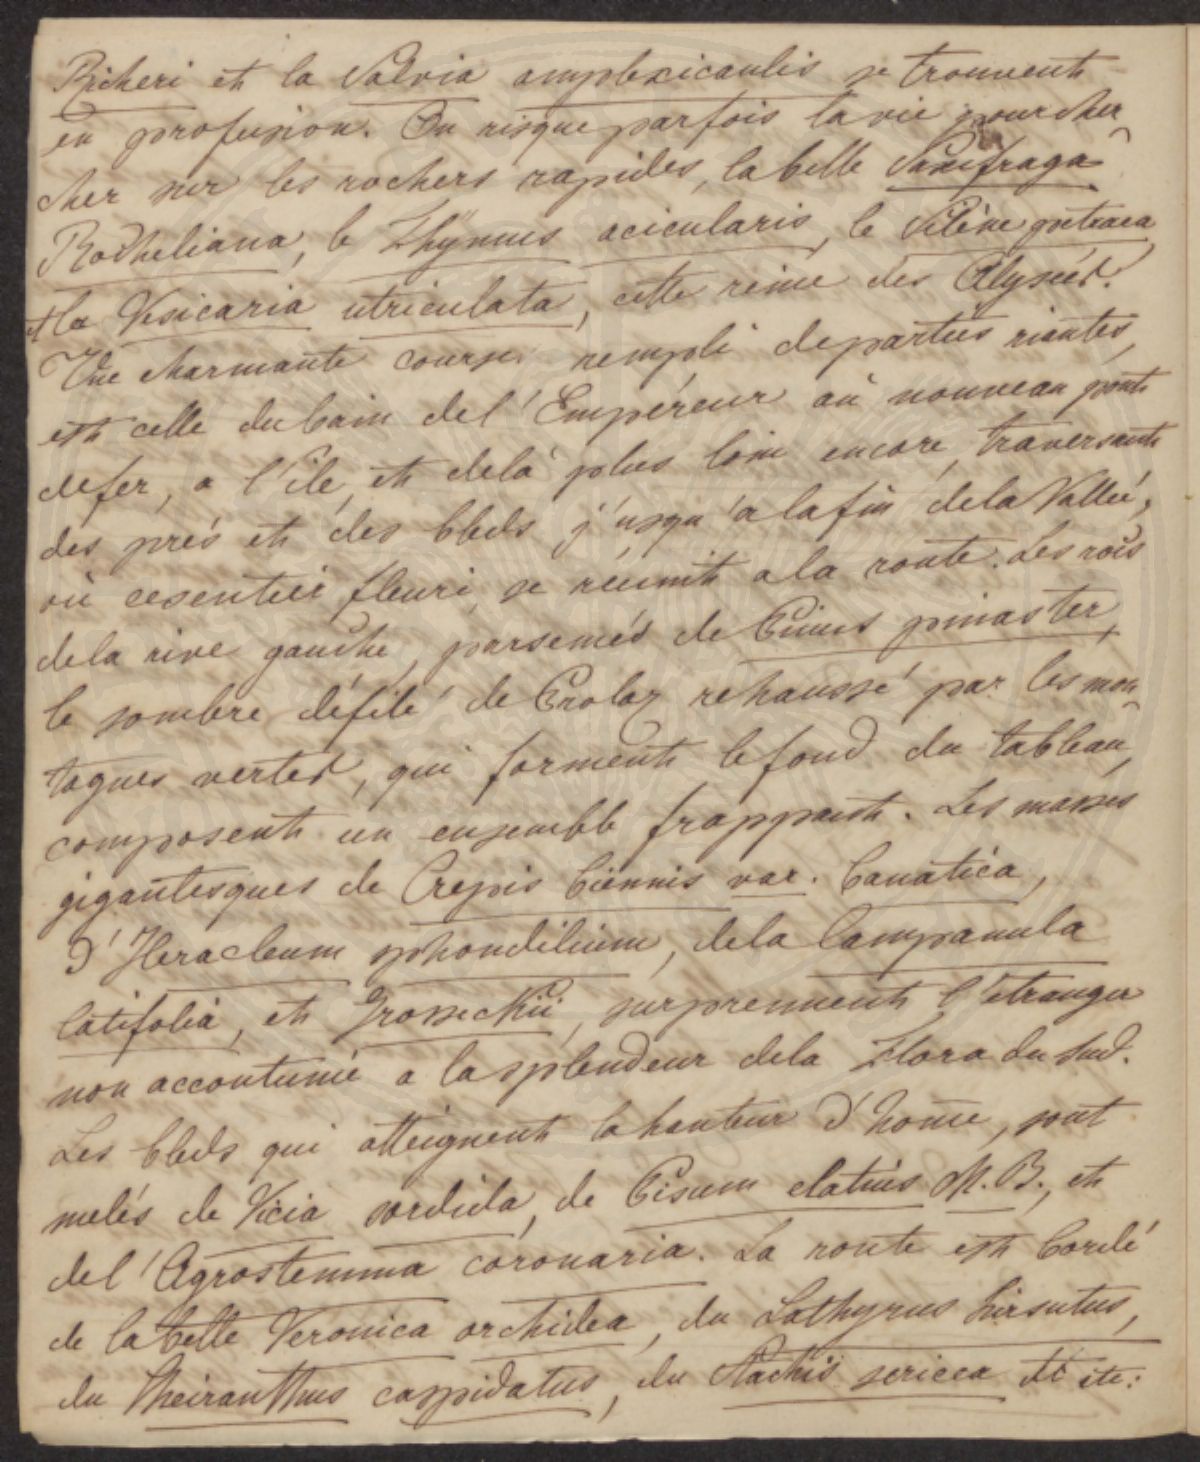 Richeri et la Salvia amplexicaulis se trouvent
en profusion. On risque parfois la vie pour cher
cher sur les rochers rapides, la belle Saxifraga
Rocheliana, le Thÿmus acicularis, le Silène petraea
et la Vesicaria utriculata, cette reine des Alysées.
Une charmante course rempli de parties riantes,
est celle du bain de l'Empéreur au nouveau pont
de fer, a l'île, et delà plus loin encore, traversant
des prés et des bleds j'usqu'a la fin de la Vallée,
où ce sentier fleuri, se réunit a la route. Les rocs
de la rive gauche, parsemés de Pinus pinaster,
le sombre défilé de Prolaz rehaussé par les mon
tagnes vertes, qui forment le fond du tableau,
composent un ensemble frappant. Les masses
gigantesques de Crepis biennis var. banatica,
d'Heracleum sphondilium, de la Campanula
latifolia, et Grosseckii, surprennent l'étranger
non accoutumé a la splendeur de la Flora du Sud.
Les bleds qui atteignent la hauteur d'hom̄e, sont
melés de Vicia sordida, de Pisum elatius M.B., et
de l'Agrostemma coronaria. La route est bordé
de la belle Veronica orchidea, du Lathyrus hirsutus,
du Cheiranthus cuspidatus, du Stachis sericea et etc: